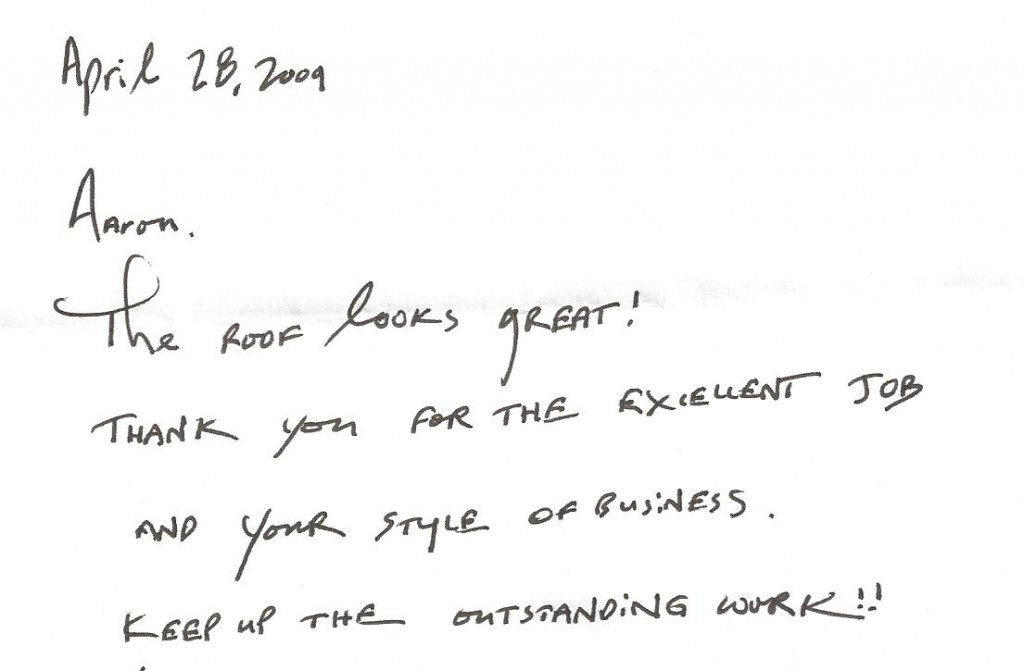 April 28, 2009
Aaron.
The ROOF looks gREAT!
THANK you FOR THE EXCELLENT JOB
AND YOUR STYLE OF BUSiNESS.
KEEP UP THE OUTSTANDiNG WORK!!